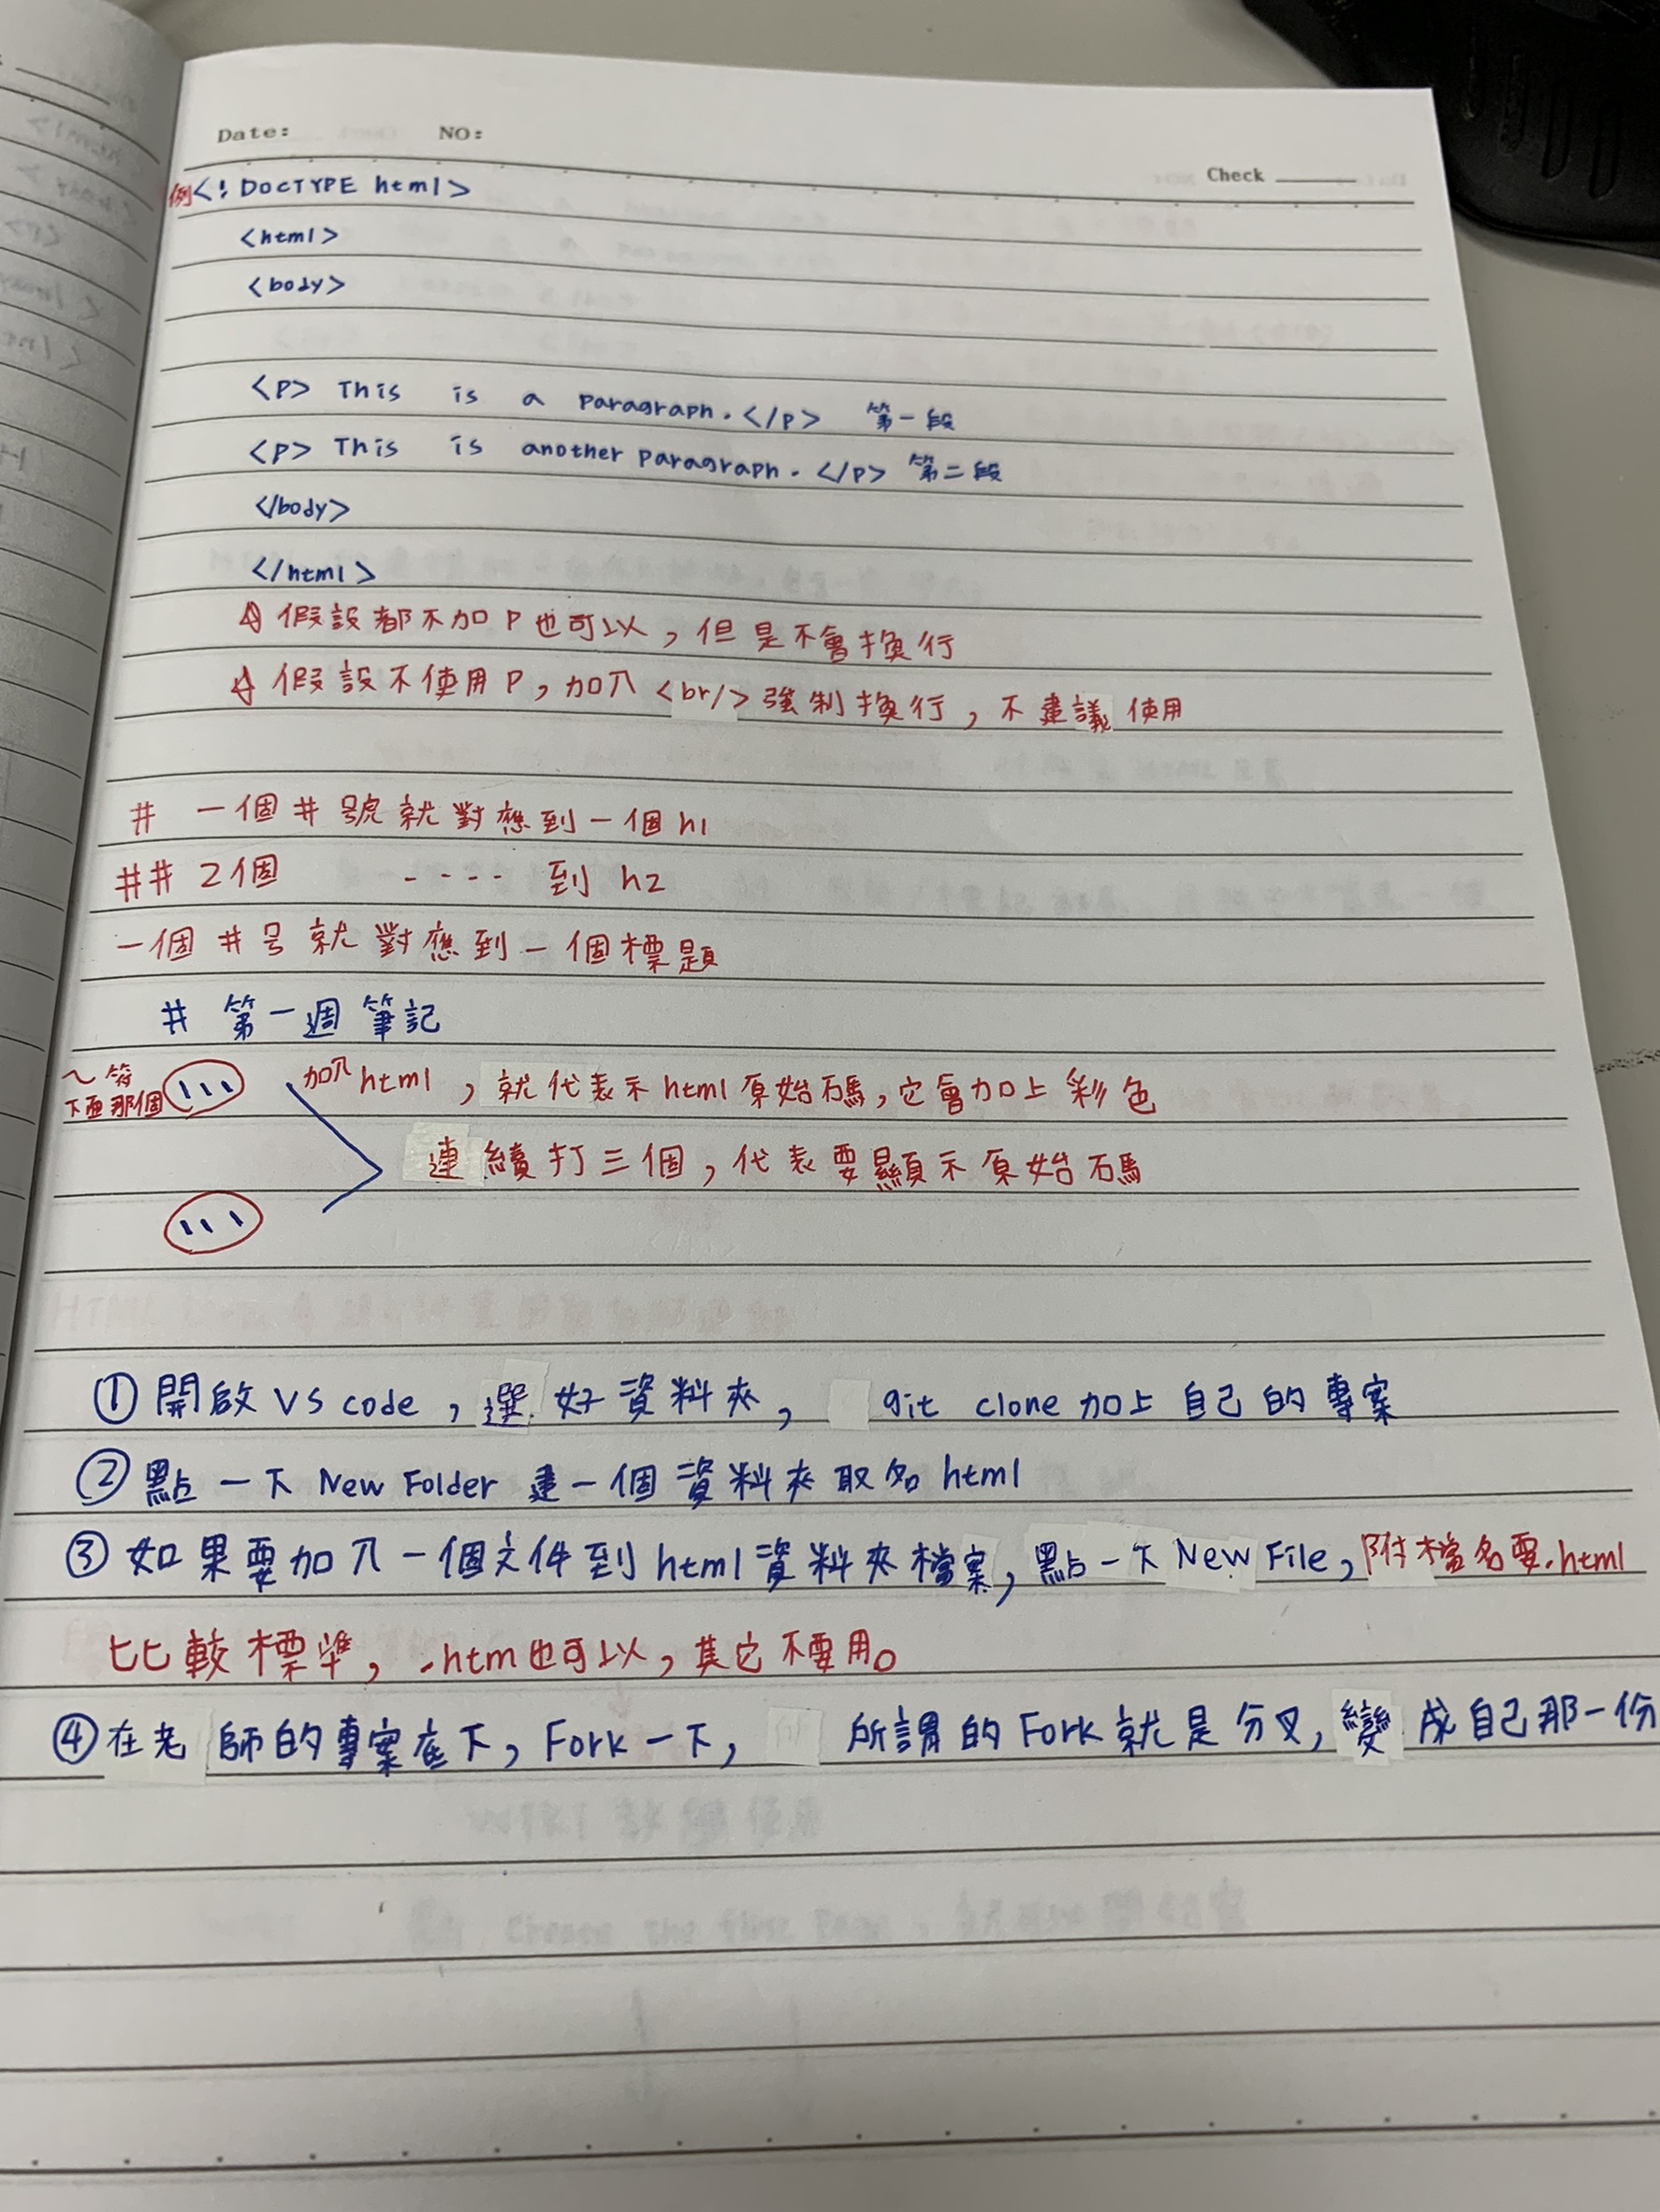 Date: NO:
Check
例<!DOCTYPE html>
<html>
<body>
<p> This is a paragraph.</p> 第一段
<p> This is another paragraph.</p> 第二段
</body>
</html>
☆ 假設都不加P也可以,但是不會換行
☆ 假設不使用P,加入<br/>強制換行,不建議使用
# 一個#號就對應到一個h1
## 2個 ---- 到 h2
一個#号就對應到一個標題
# 第一週筆記
～符下面那個 ``` 加入html,就代表示html原始碼,它會加上彩色
連續打三個,代表要顯示原始碼
```
① 開啟VS code,選好資料夾, git clone 加上自己的專案
② 點一下 New Folder 建一個資料夾取名html
③ 如果要加入一個文件到html資料夾檔案,點一下New File,附檔名要.html
比較標準,.htm也可以,其它不要用。
④ 在老師的專案底下,Fork一下, 所謂的Fork就是分叉,變成自己那一份